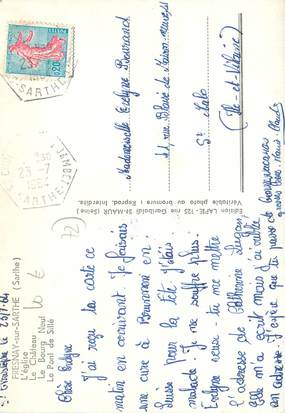 FRESNAY-sur-SARTHE (Sarthe)
L'église
Le Château
Le Bourg Neuf
Le Pont de Sillé
23/7/64
Chère Evelyne
J'ai reçu ta carte ce
matin en courant. Je faisais
une cure à
pour la fête. J'étais
malade. Je ne souffre plus
Evelyne veux-tu me mettre
l'adresse de Catherine
elle m'a écrit mais j'ai oublié
son adresse. J'espère que tu passes de bonnes vacances
Marie Claude
12
10 €
Edition LAPIE - 125 rue Garibaldi St-MAUR (Seine)
Véritable photo au bromure - Reprod. Interdite.
Mademoiselle Evelyne
11, rue
St Malo
(Ille-et-Vilaine)
POSTES
0,20
SARTHE
23 - 7
1964
SARTHE